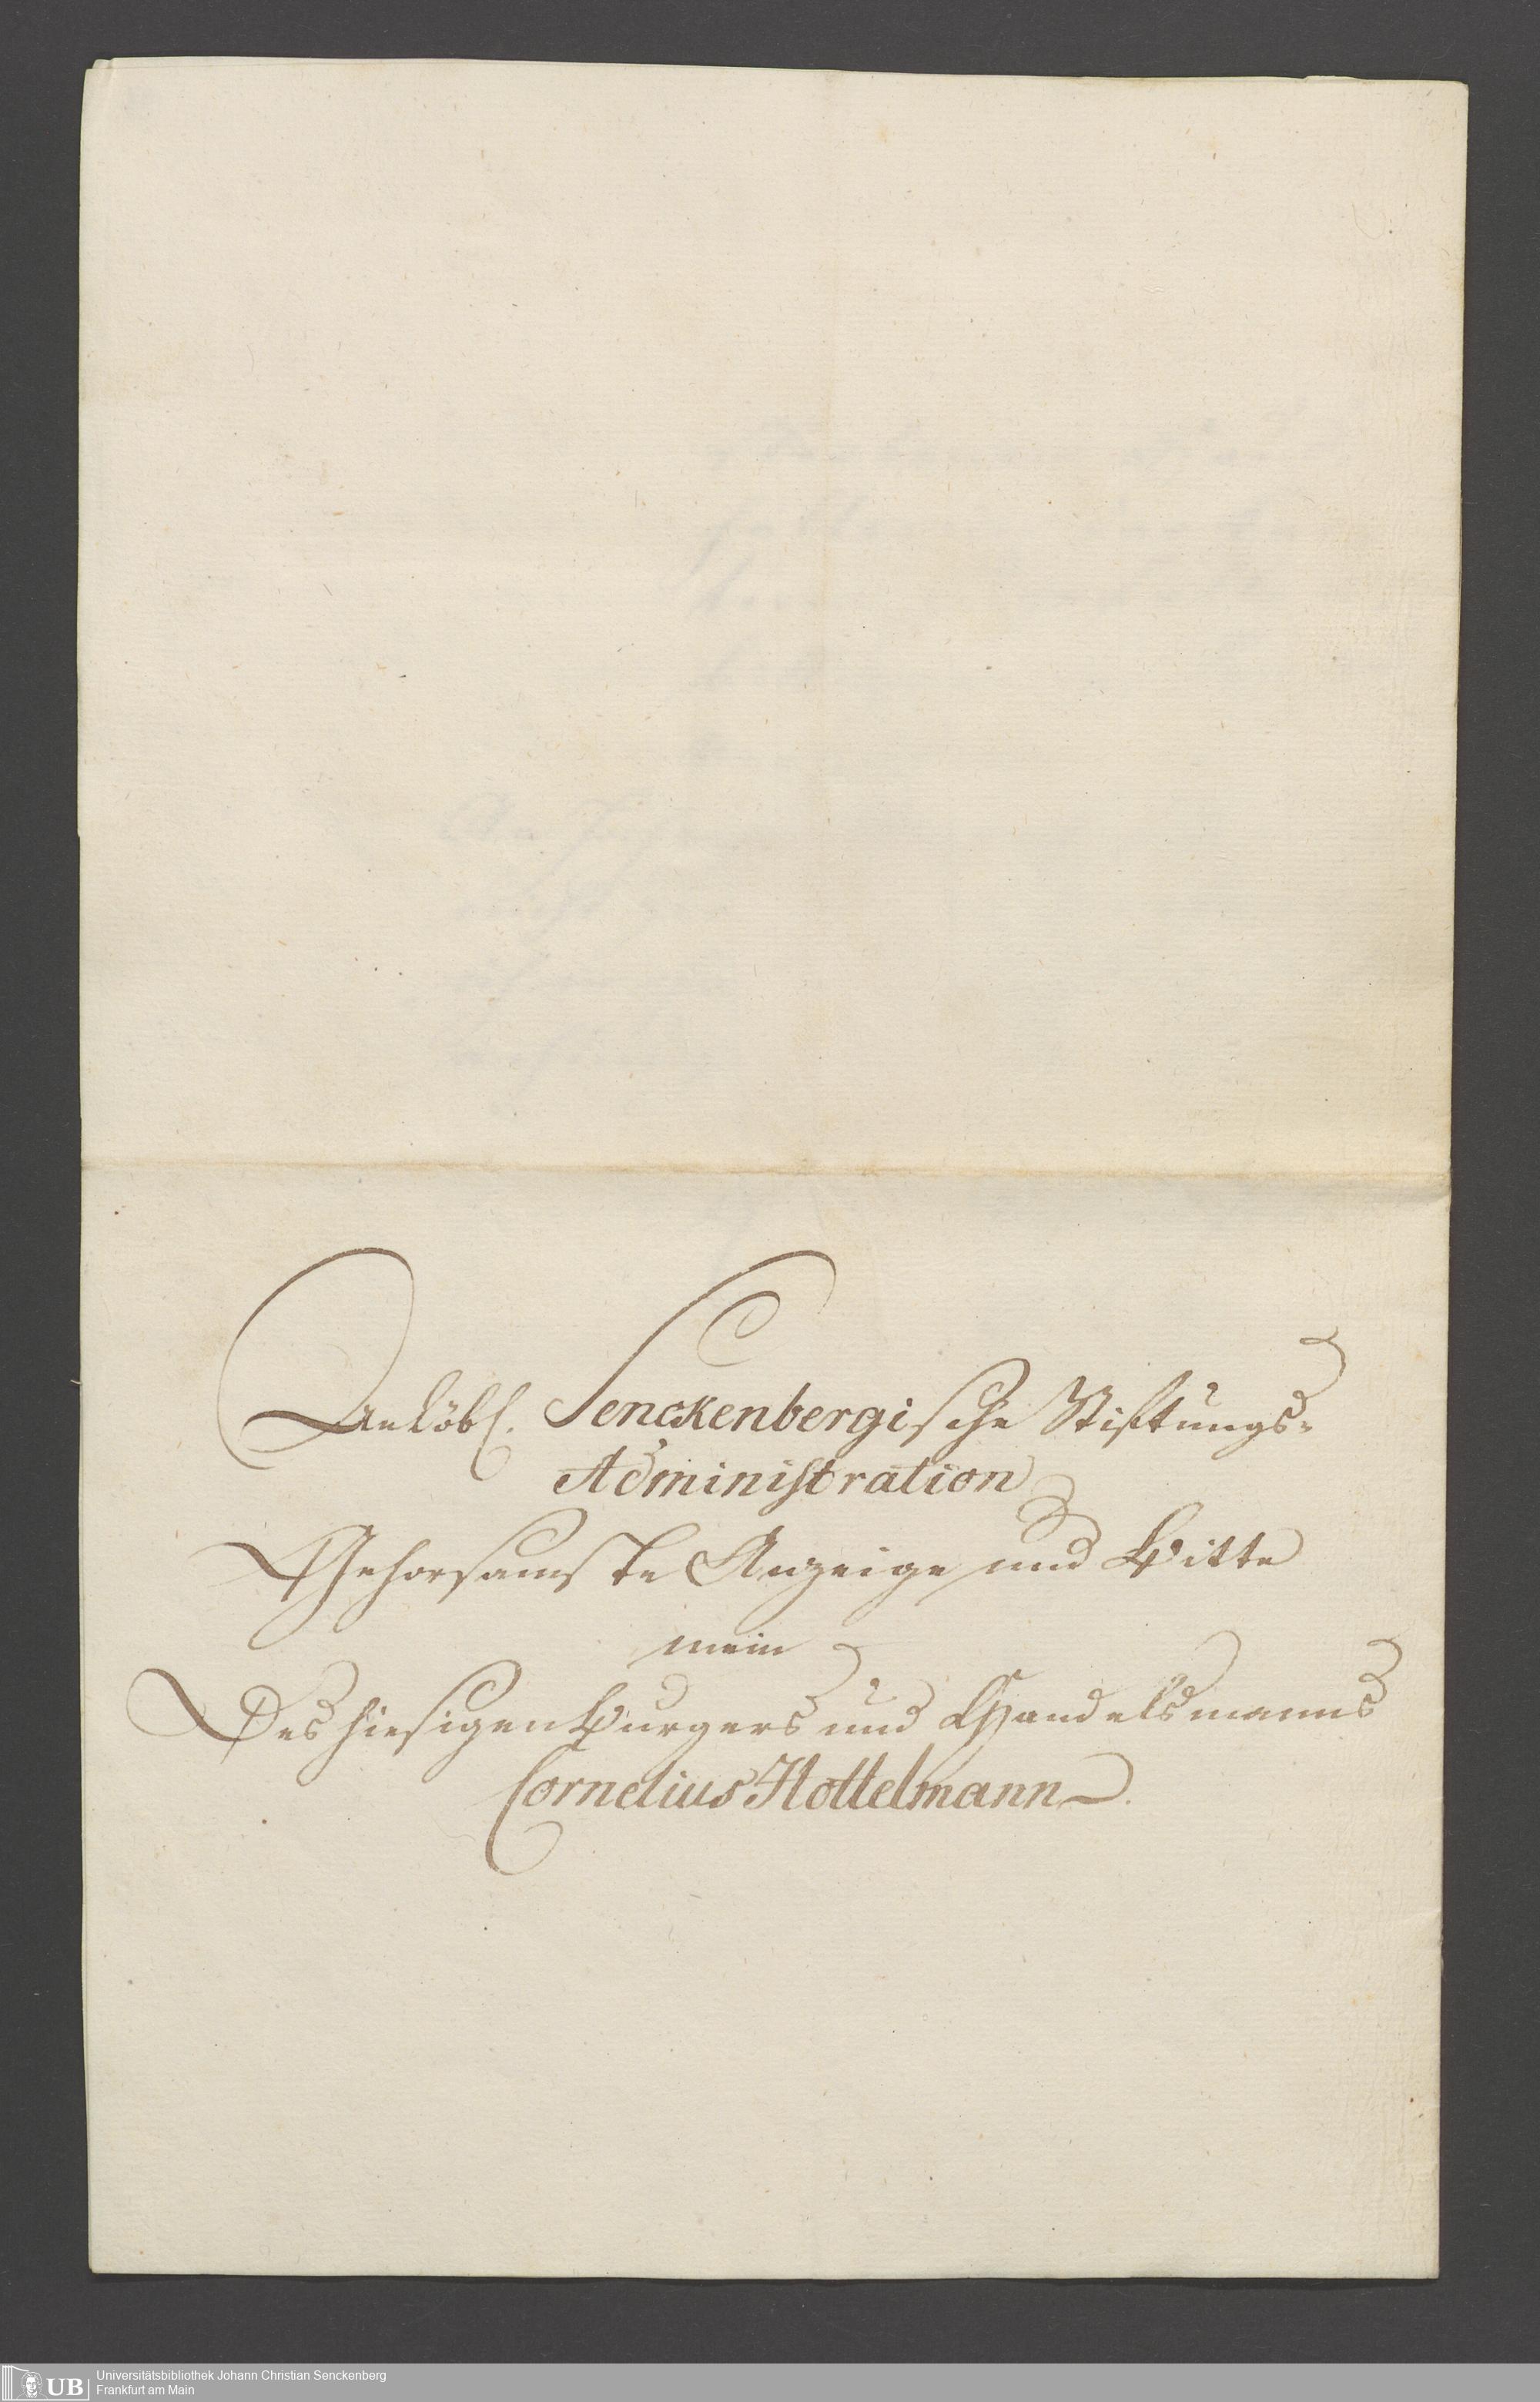 An Löbl. Senckenbergische Stiftungs-
Administration
Gehorsamste Anzeige und Bitte
mein
Des hiesigen Burgers und Handelsmanns
Cornelius Hottelmann.
UB
Universitätsbibliothek Johann Christian Senckenberg
Frankfurt am Main